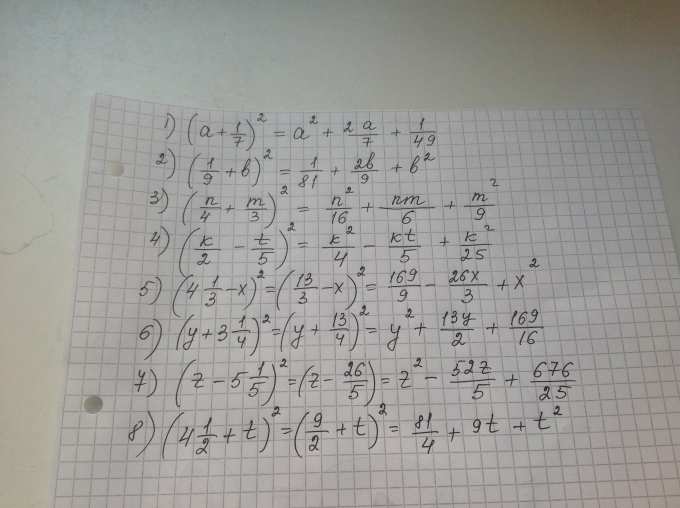 1) (a + 1/7)² = a² + 2a/7 + 1/49
2) (1/9 + b)² = 1/81 + 2b/9 + b²
3) (n/4 + m/3)² = n²/16 + nm/6 + m²/9
4) (k/2 - t/5)² = k²/4 - kt/5 + k²/25
5) (4 1/3 - x)² = (13/3 - x)² = 169/9 - 26x/3 + x²
6) (y + 3 1/4)² = (y + 13/4)² = y² + 13y/2 + 169/16
7) (z - 5 1/5)² = (z - 26/5)² = z² - 52z/5 + 676/25
8) (4 1/2 + t)² = (9/2 + t)² = 81/4 + 9t + t²